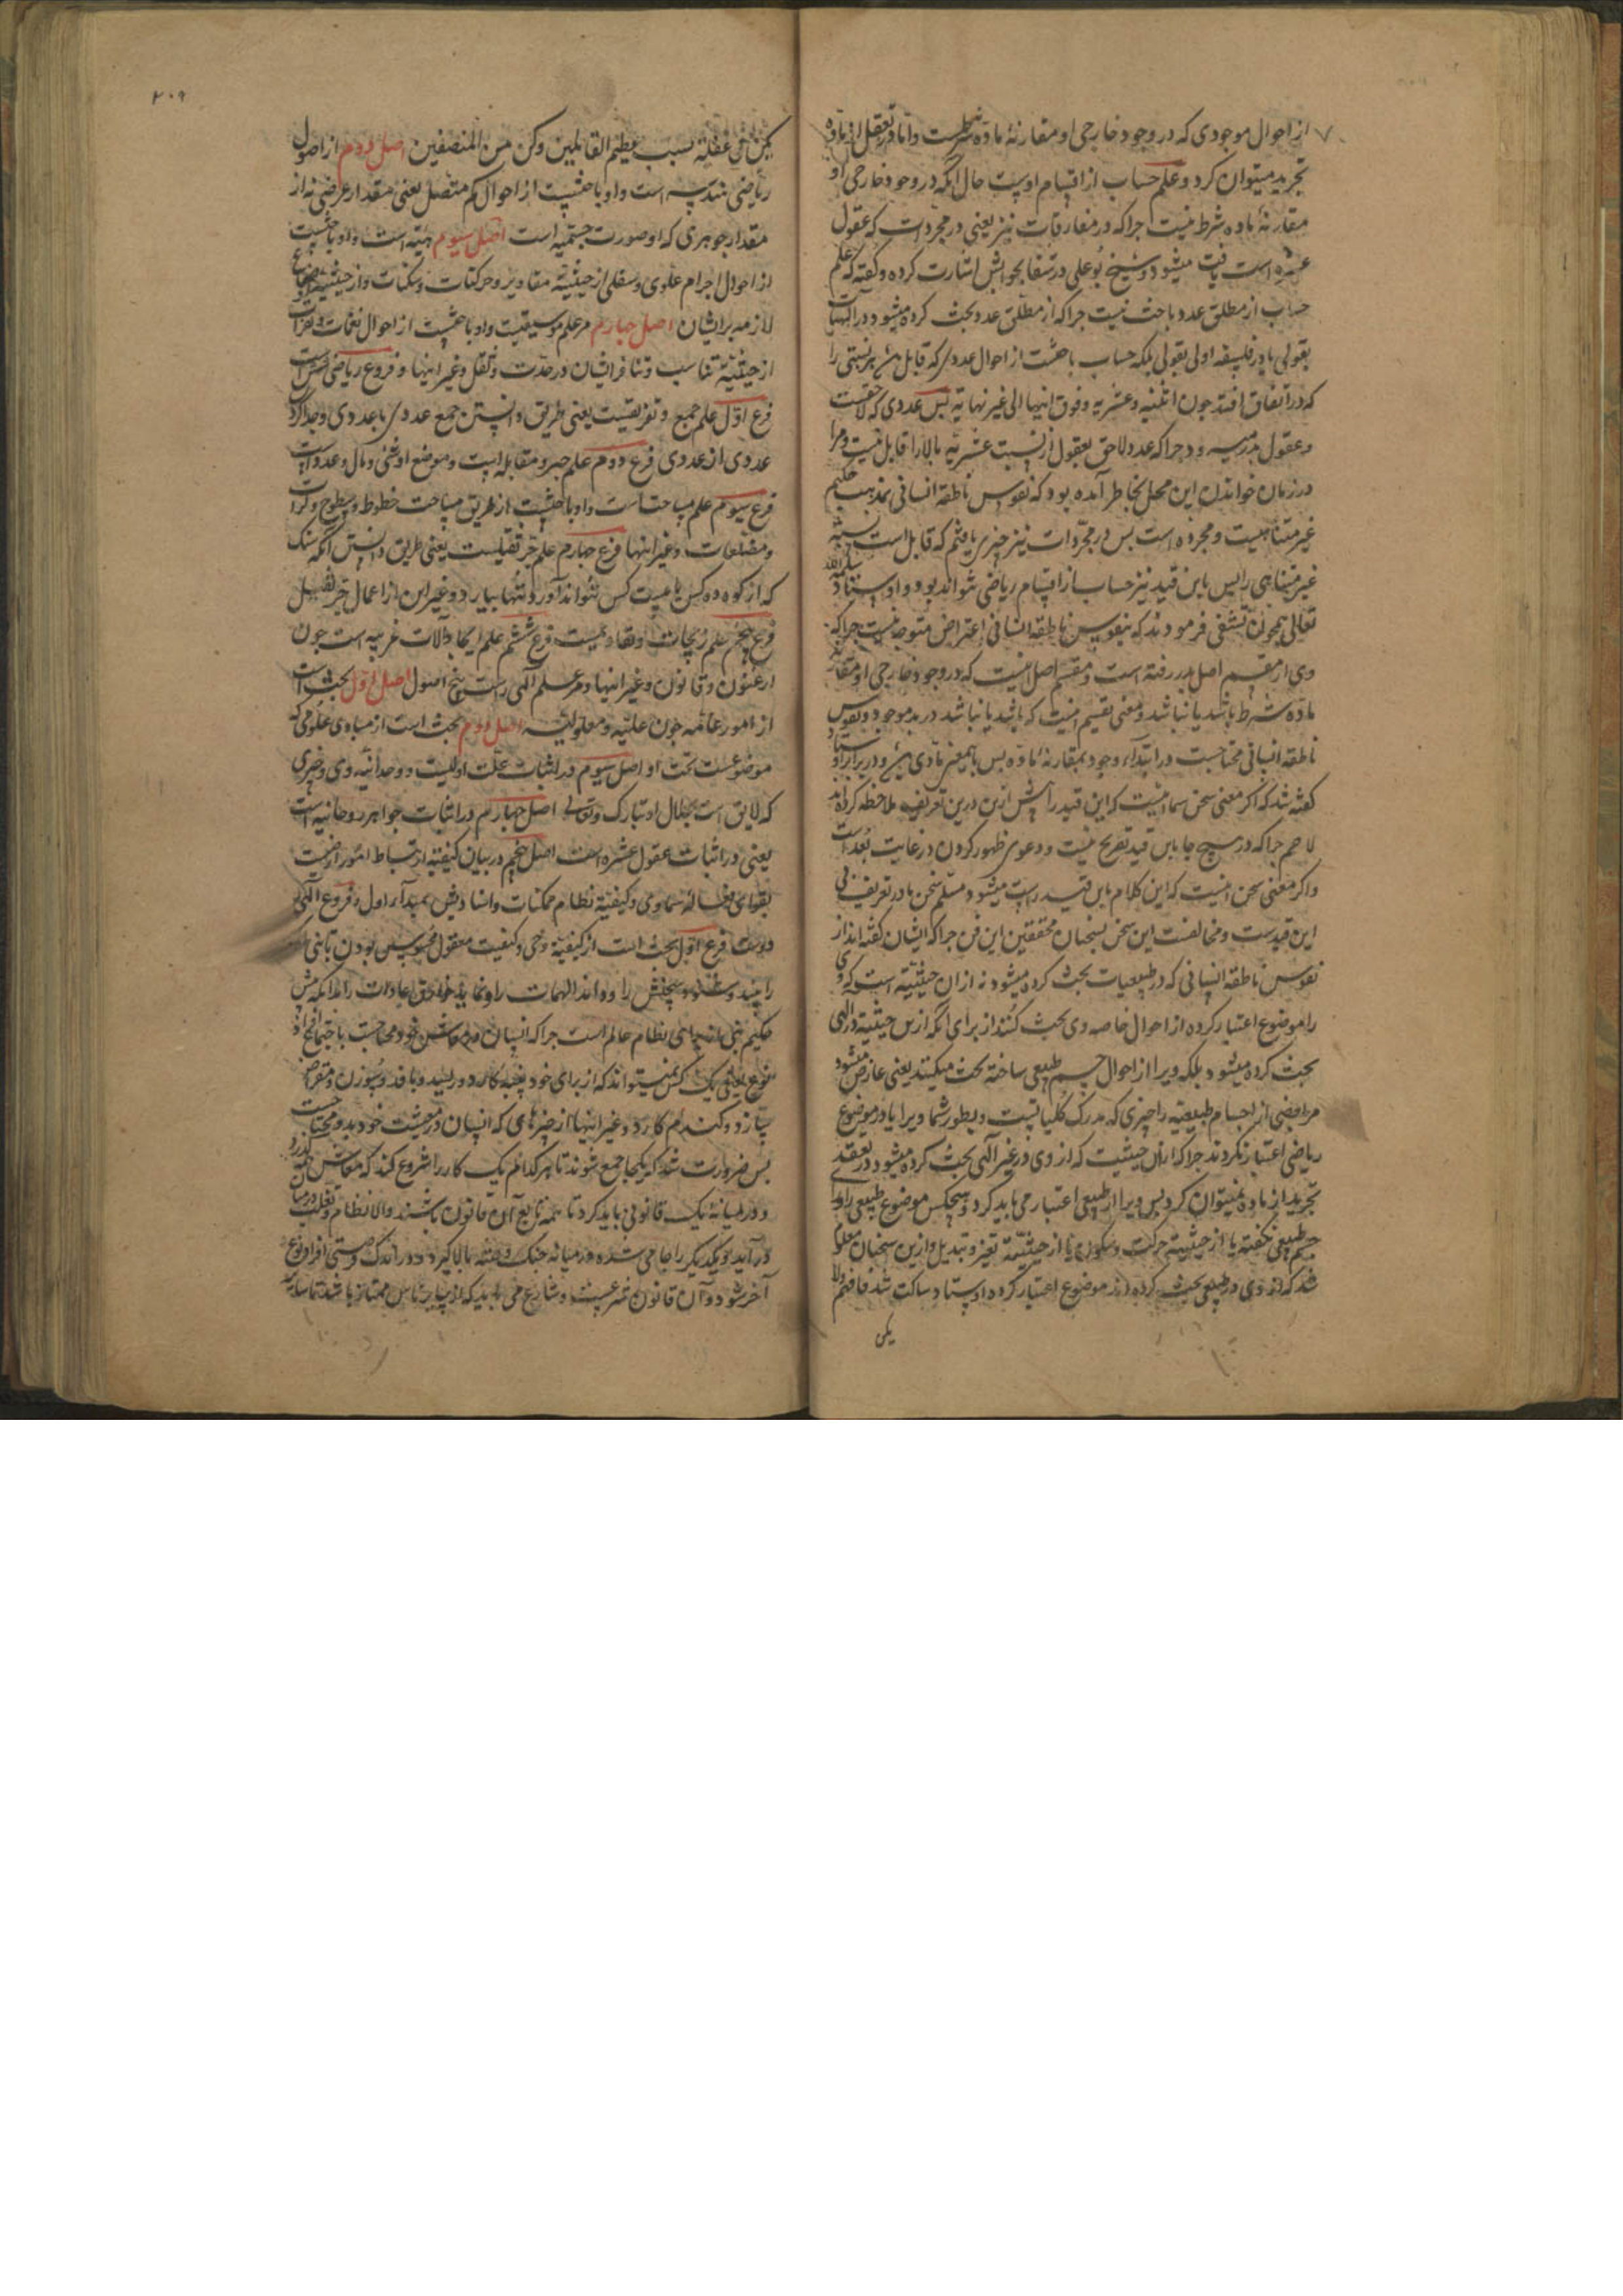 از احوال موجودی که در وجود خارجی او مقارنهٔ ماده شرطست و اما در تعقل از ماده
تجرید میتوان کرد و علم حساب از اقسام اوست حال آنکه در وجود خارجی او
مقارنهٔ ماده شرط نیست جراکه در مفارقات نیز یعنی در مجردات که عقول
عشره است یافت میشود و شیخ بوعلی در شفا بجوابش اشارت کرده و کفته که علم
حساب از مطلق عدد باحث نیست جراکه از مطلق عدد بحث کرده میشود در الهیات
بقولی یا در فلسفه اولی بقولی بلکه حساب باحثست از احوال عددی که قابل هر نسبتی را
که در اتفاق افتد جون اثنینیه و عشریه و فوق اینها الی غیر نهایه بس عددی که لاحقست
عقول مدرسه و جراکه عدد لاحق بعقول از نسبت عشریه بالا را قابل نیست و مرا
در زمان خواندن این محل بخاطر آمده بود که نفوس ناطقه انسانی بمذهب حکیم
غیر متناهیست و مجرده است بس در مجردات نیز جیزی یافتم که قابل است نسبة
غیر متناهی را بس باین قید نیز حساب از اقسام ریاضی نتواند بود و اوستاد سلمه الله
تعالی بجواب تشفی فرمودند که بنفوس ناطقهٔ انسانی اعتراض متوجه نیست جراکه
وی از مقسم اصل بدر رفته است و مقسم اصل اینست که در وجود خارجی او مقارنه
ماده شرط باشد یا نباشد و معنی تقسیم اینست که باشد یا نباشد در بدو موجود و نفوس
ناطقه انسانی محتاجست در ابتداء وجود بمقارنهٔ ماده بس باین معنی مادی و در برابر اوستاد
کفته شد که اکر معنی سخن شما اینست که این قید را بیش ازین درین تعریف ملاحظه کرده اند
لا جرم جراکه در هیچ جا باین قید تصریح نیست و دعوی ظهور کردن در غایت بعد است
و اکر معنی سخن اینست که این کلام باین قید راست میشود مسلم سخن ما در تعریف بی
این قید ست و مخالفست این سخن بسخنان محققین این فن جراکه ایشان کفته اند از
نفوس ناطقه انسانی که در طبیعیات بحث کرده میشود نه از ان حیثیته است که وی
را موضوع اعتبار کرده از احوال خاصه وی بحث کنند از برای انکه ازین حیثیته در الهی
بحث کرده میشود بلکه ویرا از احوال جسم طبیعی ساخته بحث میکنند یعنی عارض میشود
مر بعضی از اجسام طبیعیه را جیزی که مدرک کلیاتست و بطور شما ویرا یا در موضوع
ریاضی اعتبار نکردند جراکه از ان حیثیت که از وی در غیر آلهی بحث کرده میشود در تعقل
تجرید از ماده نمیتوان کرد بس ویرا از طبیعی اعتبار می باید کرد و هیجکس موضوع طبیعی را
جسم طبیعی نکفته یا از حیثیته حرکت و سکون یا از حیثیته تغیر و تبدیل و ازین سخنان معلوم
شد که از وی در طبیعی بحث کرده اند موضوع اعتبار کرده اوستاد ساکت شد فافهم ولا
یکن
۲۰۹
یکن فی غفلة بسبب عظیم القائلین وکن من المنصفین اصل دوم از اصول
ریاضی هندسه است و او باحثست از احوال کم متصل یعنی مقدار عرضی نه از
مقدار جوهری که او صورت جسمیه است اصل سیوم هیئة است و او باحثست
از احوال اجرام علوی و سفلی از حیثیة مقادیر و حرکات و سکنات و از حیثیة اوضاع
لازمه بر ایشان اصل جهارم مر علم موسیقیست و او باحثست از احوال نغمات و نقرات
از حیثیة تناسب و تنافر ایشان در حدت و ثقل و غیر اینها و فروع ریاضی شش است
فرع اول علم جمع و تفریقست یعنی طریق دانستن جمع عددی با عددی و جدا کردن
عددی از عددی فرع دوم علم جبر و مقابله است و موضع او شی و مال و عدد است
فرع سیوم علم مساحتست و او باحثست از طریق مساحت خطوط و سطوح و کرات
و مضلعات و غیر اینها فرع جهارم علم جر ثقیلست یعنی طریق دانستن انکه سنک
که از کوه ده کس یا بیست کس نتواند آورد تنها بیارد و غیر این از اعمال جر ثقیل
فرع پنجم علم زیجات و تقاویمست فرع ششم علم ایجاد آلات غریبه است جون
ارغنون و قانون و غیر اینها و مر علم آلهی راست پنج اصول اصل اول بحث است
از امور عامه جون علیة و معلولیة اصل دوم بحث است از مبادی علومی که
موضوعست تحت او اصل سیوم در اثبات علت اولیست و وحدانیة وی و جیزی
که لایق است بجلال او تبارک و تعالی اصل جهارم در اثبات جواهر روحانیه است
یعنی در اثبات عقول عشره است اصل پنجم در بیان کیفیة ارتباط امور ارضیست
بقوای فعالهٔ سماوی و کیفیة نظام ممکنات و انتسابش بمبدأ اول و فروع آلهی
دوست فرع اول بحث است از کیفیة وحی و کیفیت معقول محسوس بودن تا نبی ملک
را بیند و سخنش را و ماند الهمات را و نماید خوارق عادات را انکه پیش
حکیم نبی از برای نظام عالم است جراکه انسان در معاش خود محتاجست باجتماع افراد
نوع یعنی یک کس نمیتواند که از برای خود پنبه کارد و ریسد و بافد و سوزن و مقراض
سازد و کندم کارد و غیر اینها از جیزهای که انسان در معیشت خود بدو محتاجست
بس ضرورت شد که یکجا جمع شوند تا هر کدام یک کار را شروع کند که معاش همه کذرد
و در میانهٔ یک قانونی باید کرد تا همه تابع آن قانون باشند والا نظام و تغلب در میان
در آید و یکدیکر را جامی شده در میانه جنک و فتنه بالا کیرد و در اندک وقتی افراد نوع
آخر شود و آن قانون شرعست و شارع می باید که از سایر ناس ممتاز باشد تا سایر